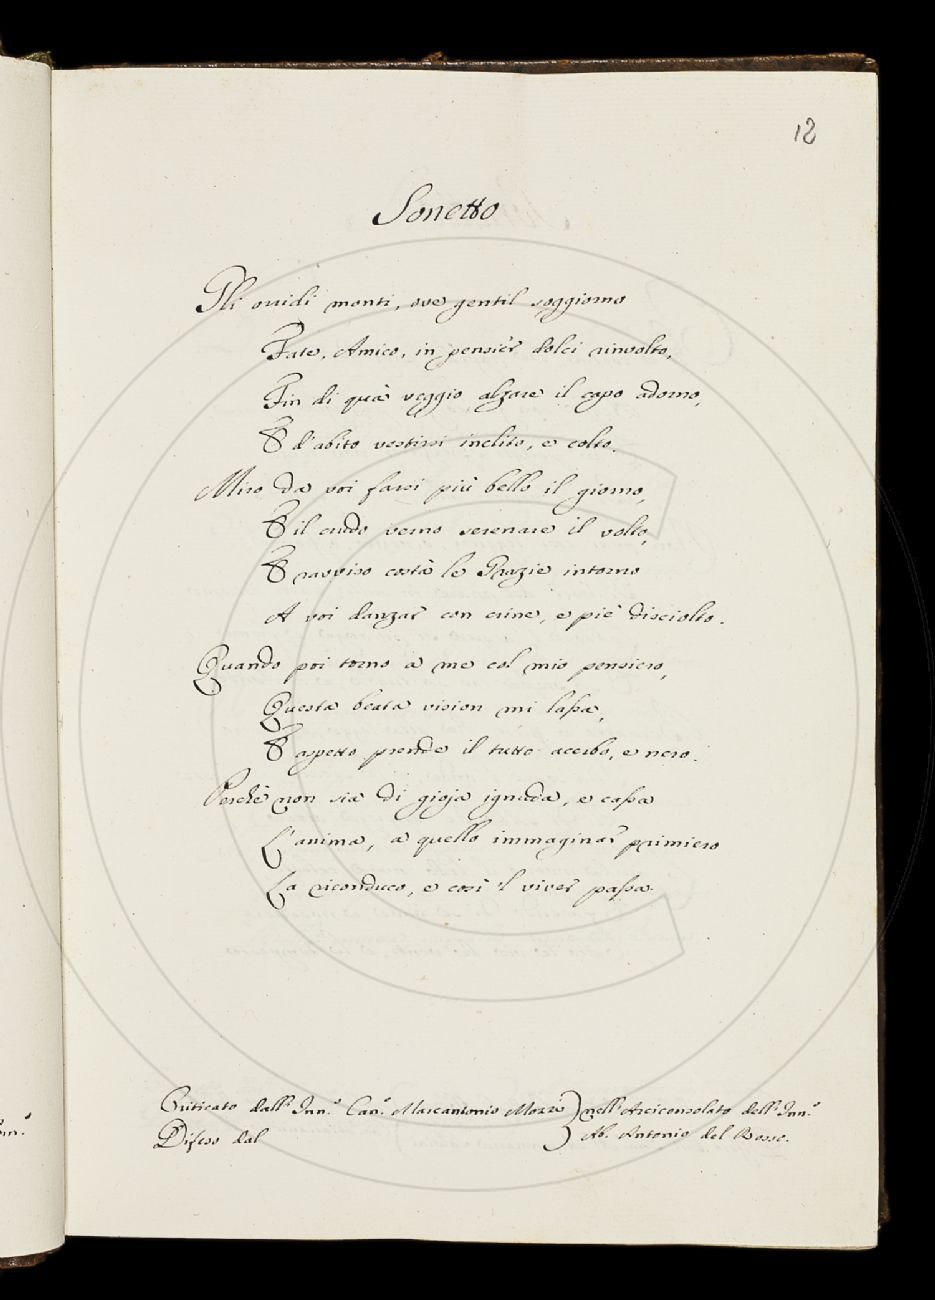 12
Sonetto
Gli ovidi monti, ove gentil soggiorno
Fate, Amico, in pensièr dolci rinvolto,
Fin di quà veggio alzare il capo adorno,
E d'abito vestirsi inclito, e colto.
Miro da voi farsi più bello il giorno,
E il crudo verno serenare il volto,
E ravviso costà le Grazie intorno
A voi danzar con crine, e piè disciolto.
Quando poi torno a me col mio pensiero,
Questa beata vision mi lassa,
E aspetto prende il tutto acerbo, e nero.
Perchè non sia di gioja ignuda, e cassa
L'anima, a quello immaginar primiero
La riconduco, e così 'l viver passa.
Criticato dall' Inn.º Can.º Marcantonio Mozzi ) nell' Arciconsolato dell' Inn.º
Difeso dal ) Ab. Antonio del Rosso.
nn.º